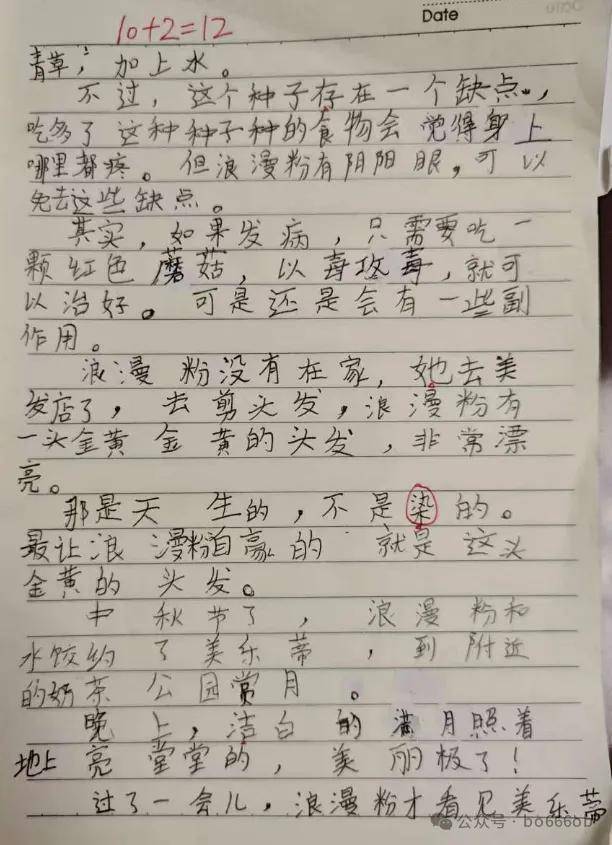 Date
10+2=12
青草，加上水。
不过，这个种子存在一个缺点，
吃多了这种种子种的食物会觉得身上
哪里都疼。但浪漫粉有阴阳眼，可以
免去这些缺点。
其实，如果发病，只需要吃一
颗红色蘑菇，以毒攻毒，就可
以治好。可是还是会有一些副
作用。
浪漫粉没有在家，她去美
发店了，去剪头发，浪漫粉有
一头金黄金黄的头发，非常漂
亮。
那是天生的，不是染的。
最让浪漫粉自豪的就是这头
金黄的头发。
中秋节了，浪漫粉和
水饺约了美乐蒂，到附近
的奶茶公园赏月。
晚上，洁白的满月照着
地上亮堂堂的，美丽极了！
过了一会儿，浪漫粉才看见美乐蒂
公众号·bo666ob